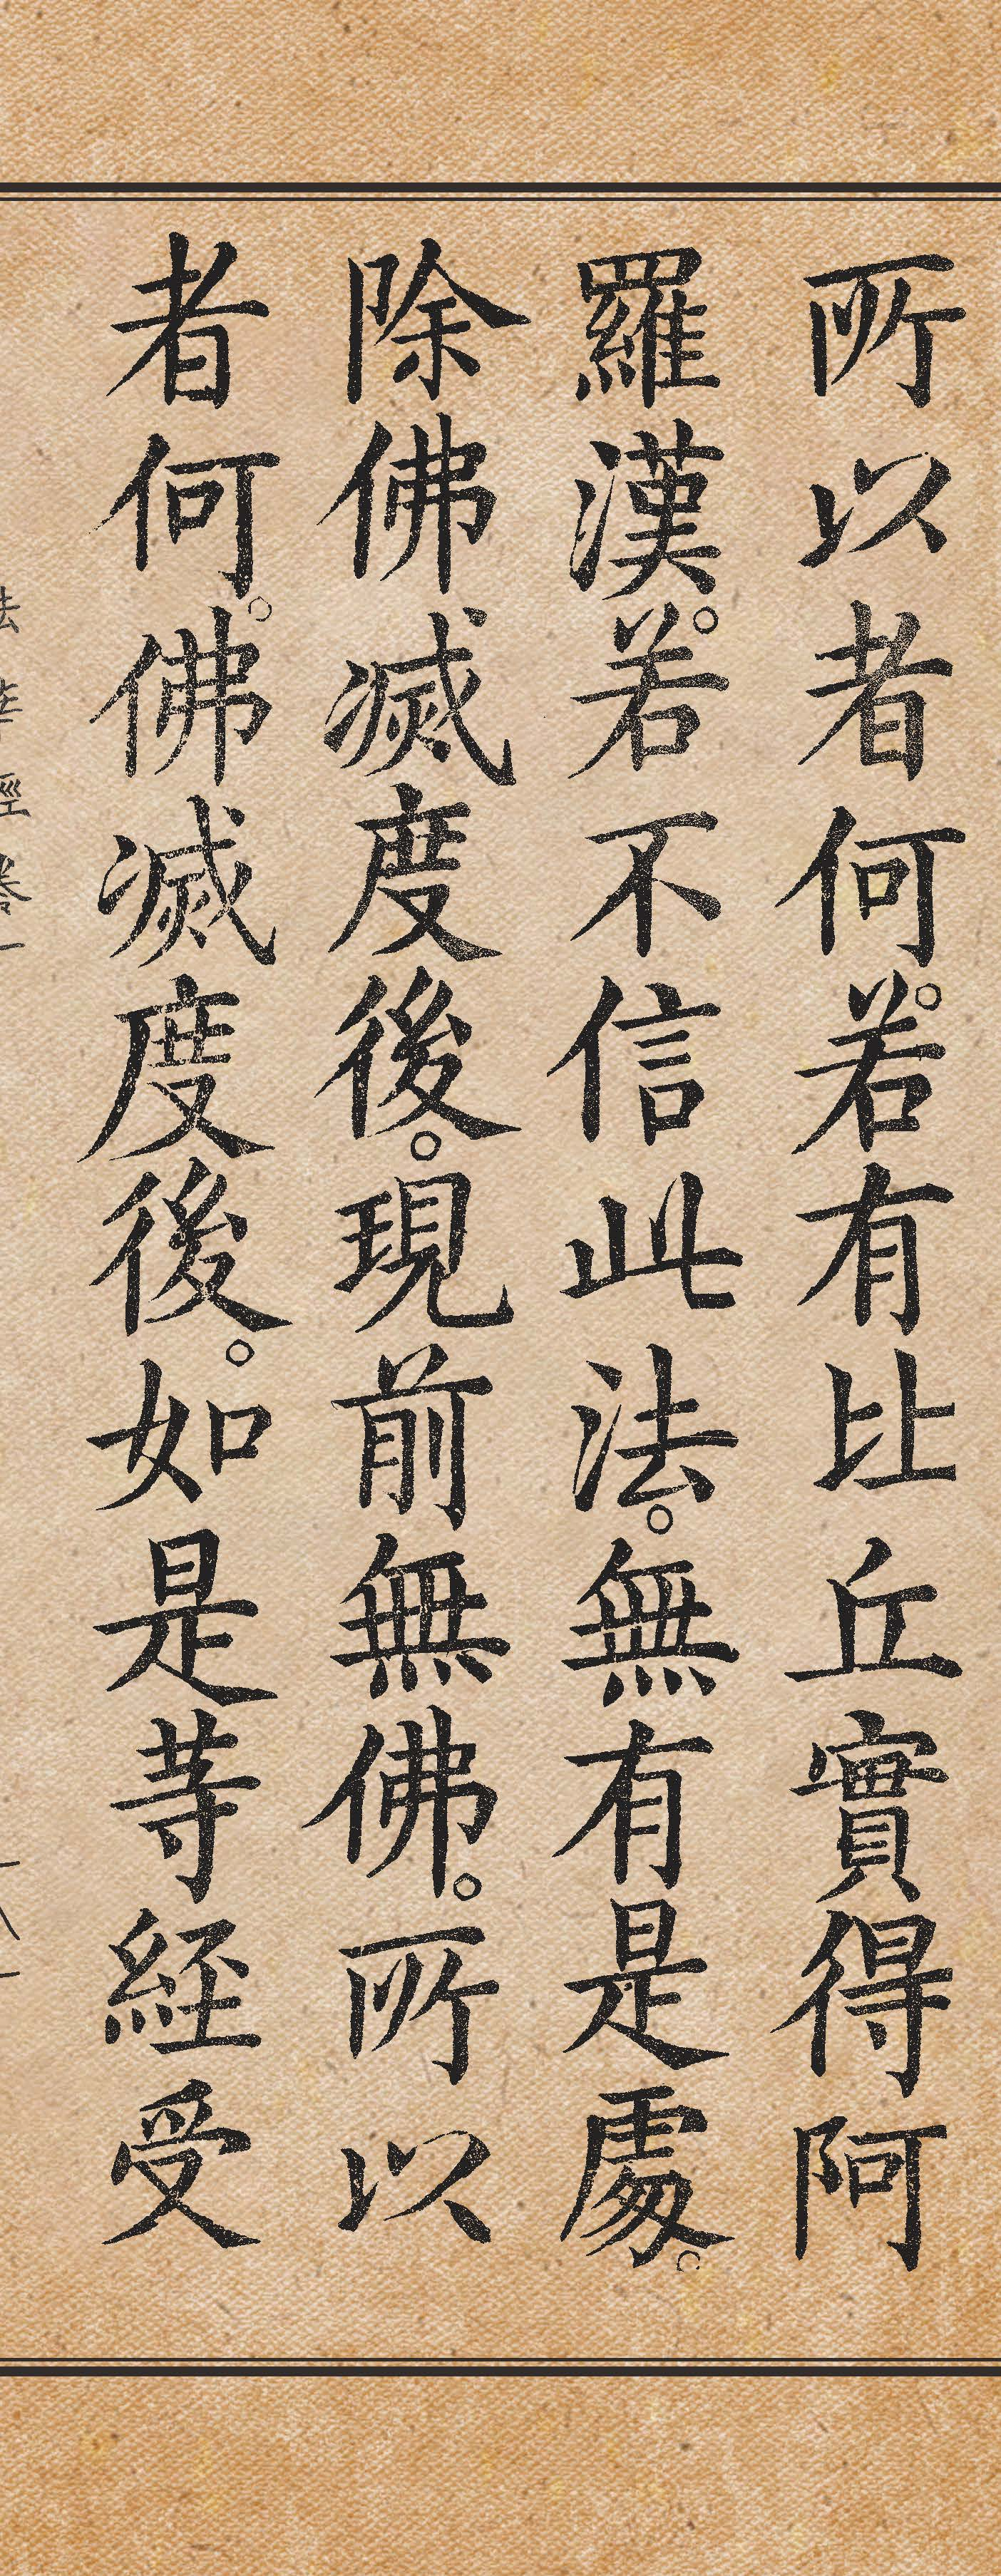 所以者何。若有比丘實得阿
羅漢。若不信此法。無有是處。
除佛滅度後。現前無佛。所以
者何。佛滅度後。如是等經受
法華經卷一